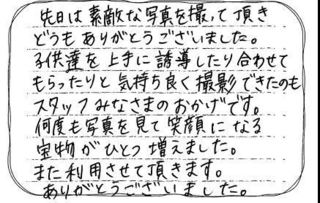 先日は素敵な写真を撮って頂き
どうもありがとうございました。
子供達を上手に誘導したり合わせて
もらったりと気持ち良く撮影できたのも
スタッフみなさまのおかげです。
何度も写真を見て笑顔になる
宝物がひとつ増えました。
また利用させて頂きます。
ありがとうございました。